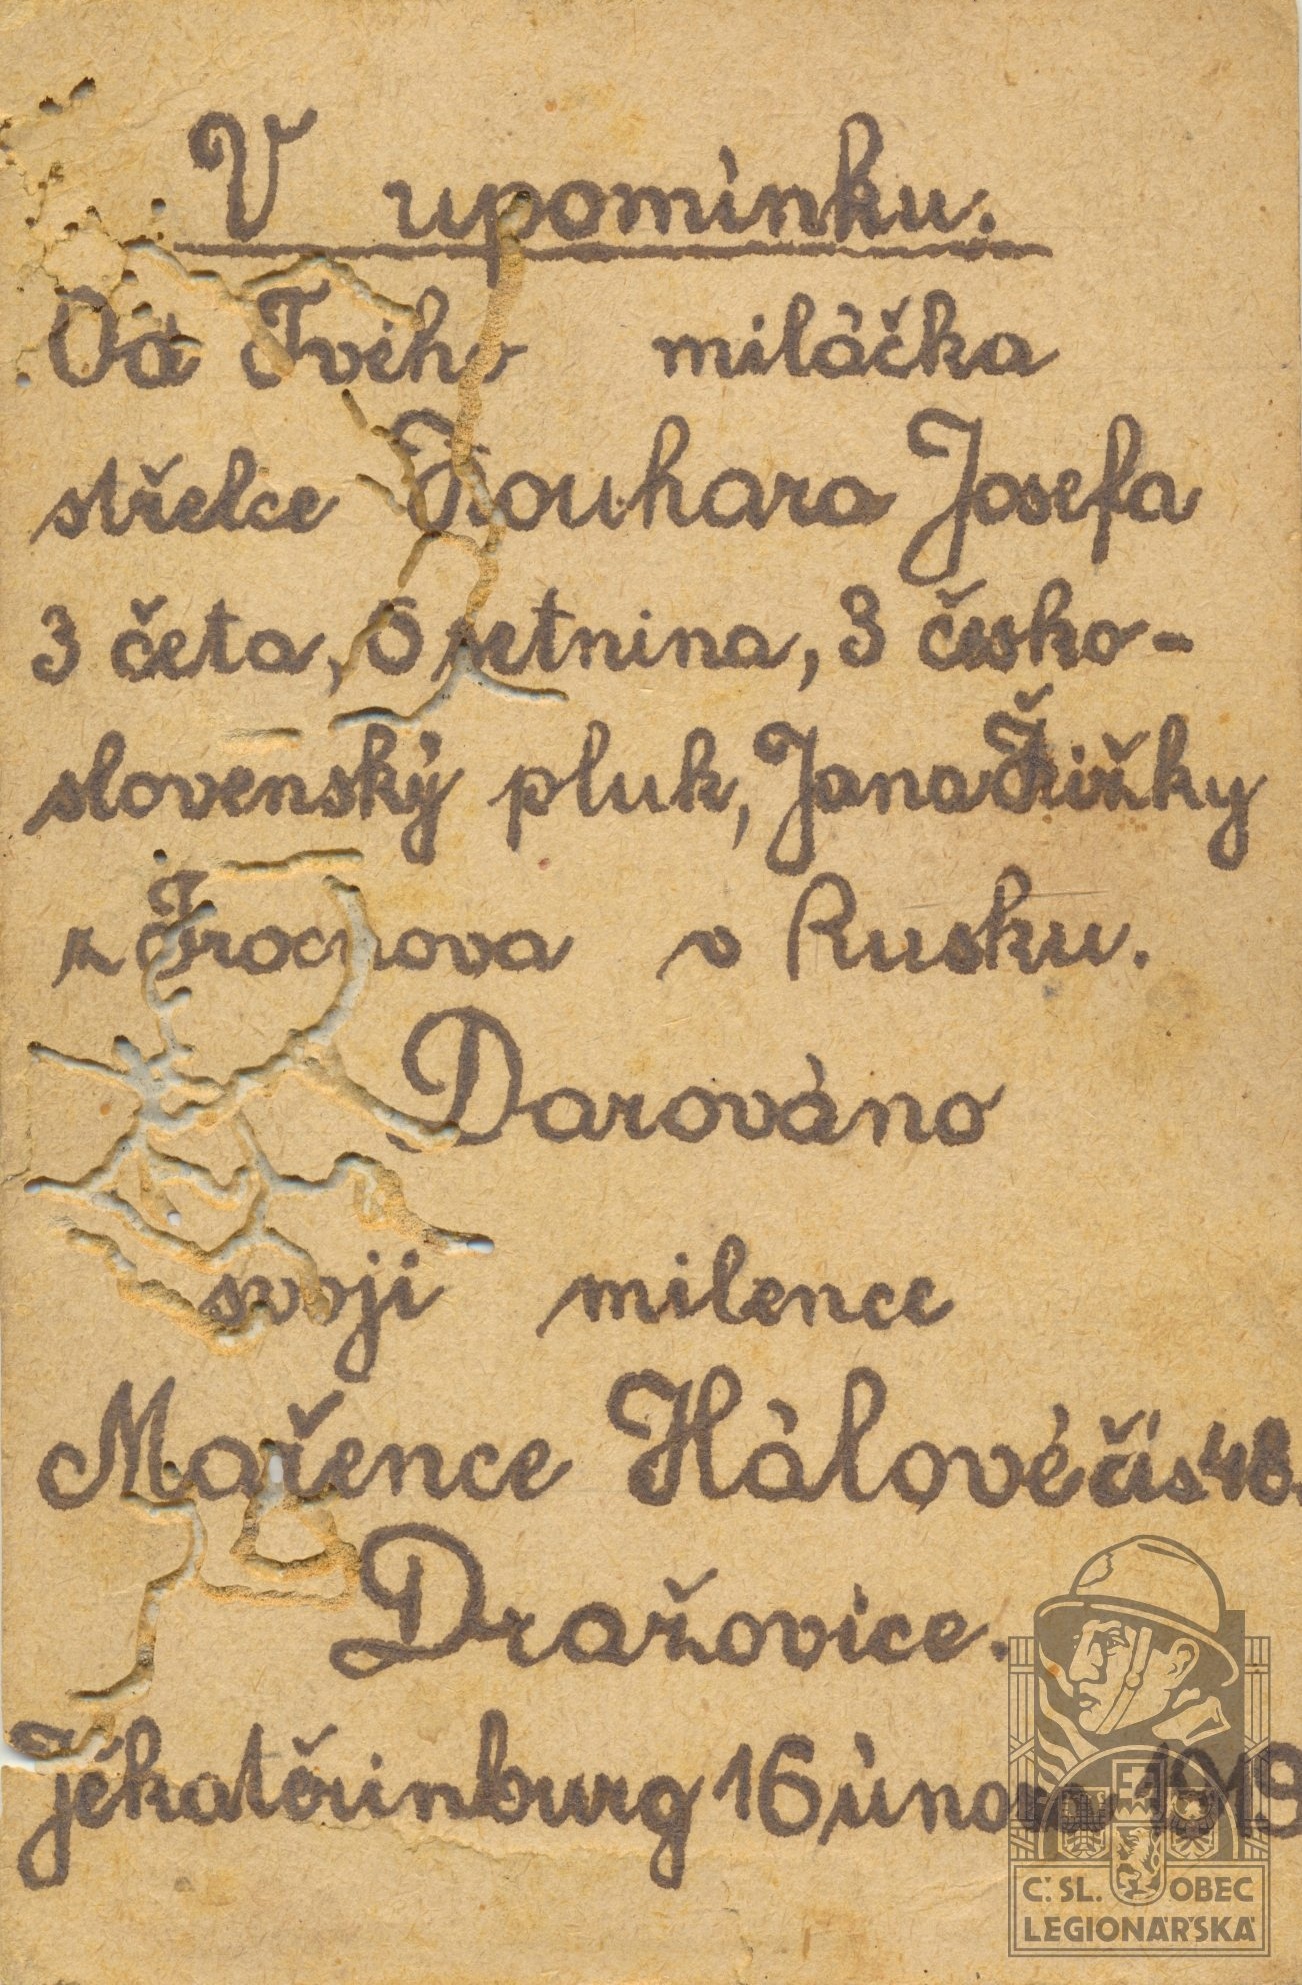 V upomínku.
Od Tvého miláčka
střelce Kouhara Josefa
3 četa, 5 setnina, 3 česko-
slovenský pluk, Jana Žižky
z Trocnova v Rusku.
Darováno
svoji milence
Mařence Hálové čís 48.
Dražovice.
Jekatěrinburg 16 února 1919
Č. SL. OBEC
LEGIONÁŘSKÁ